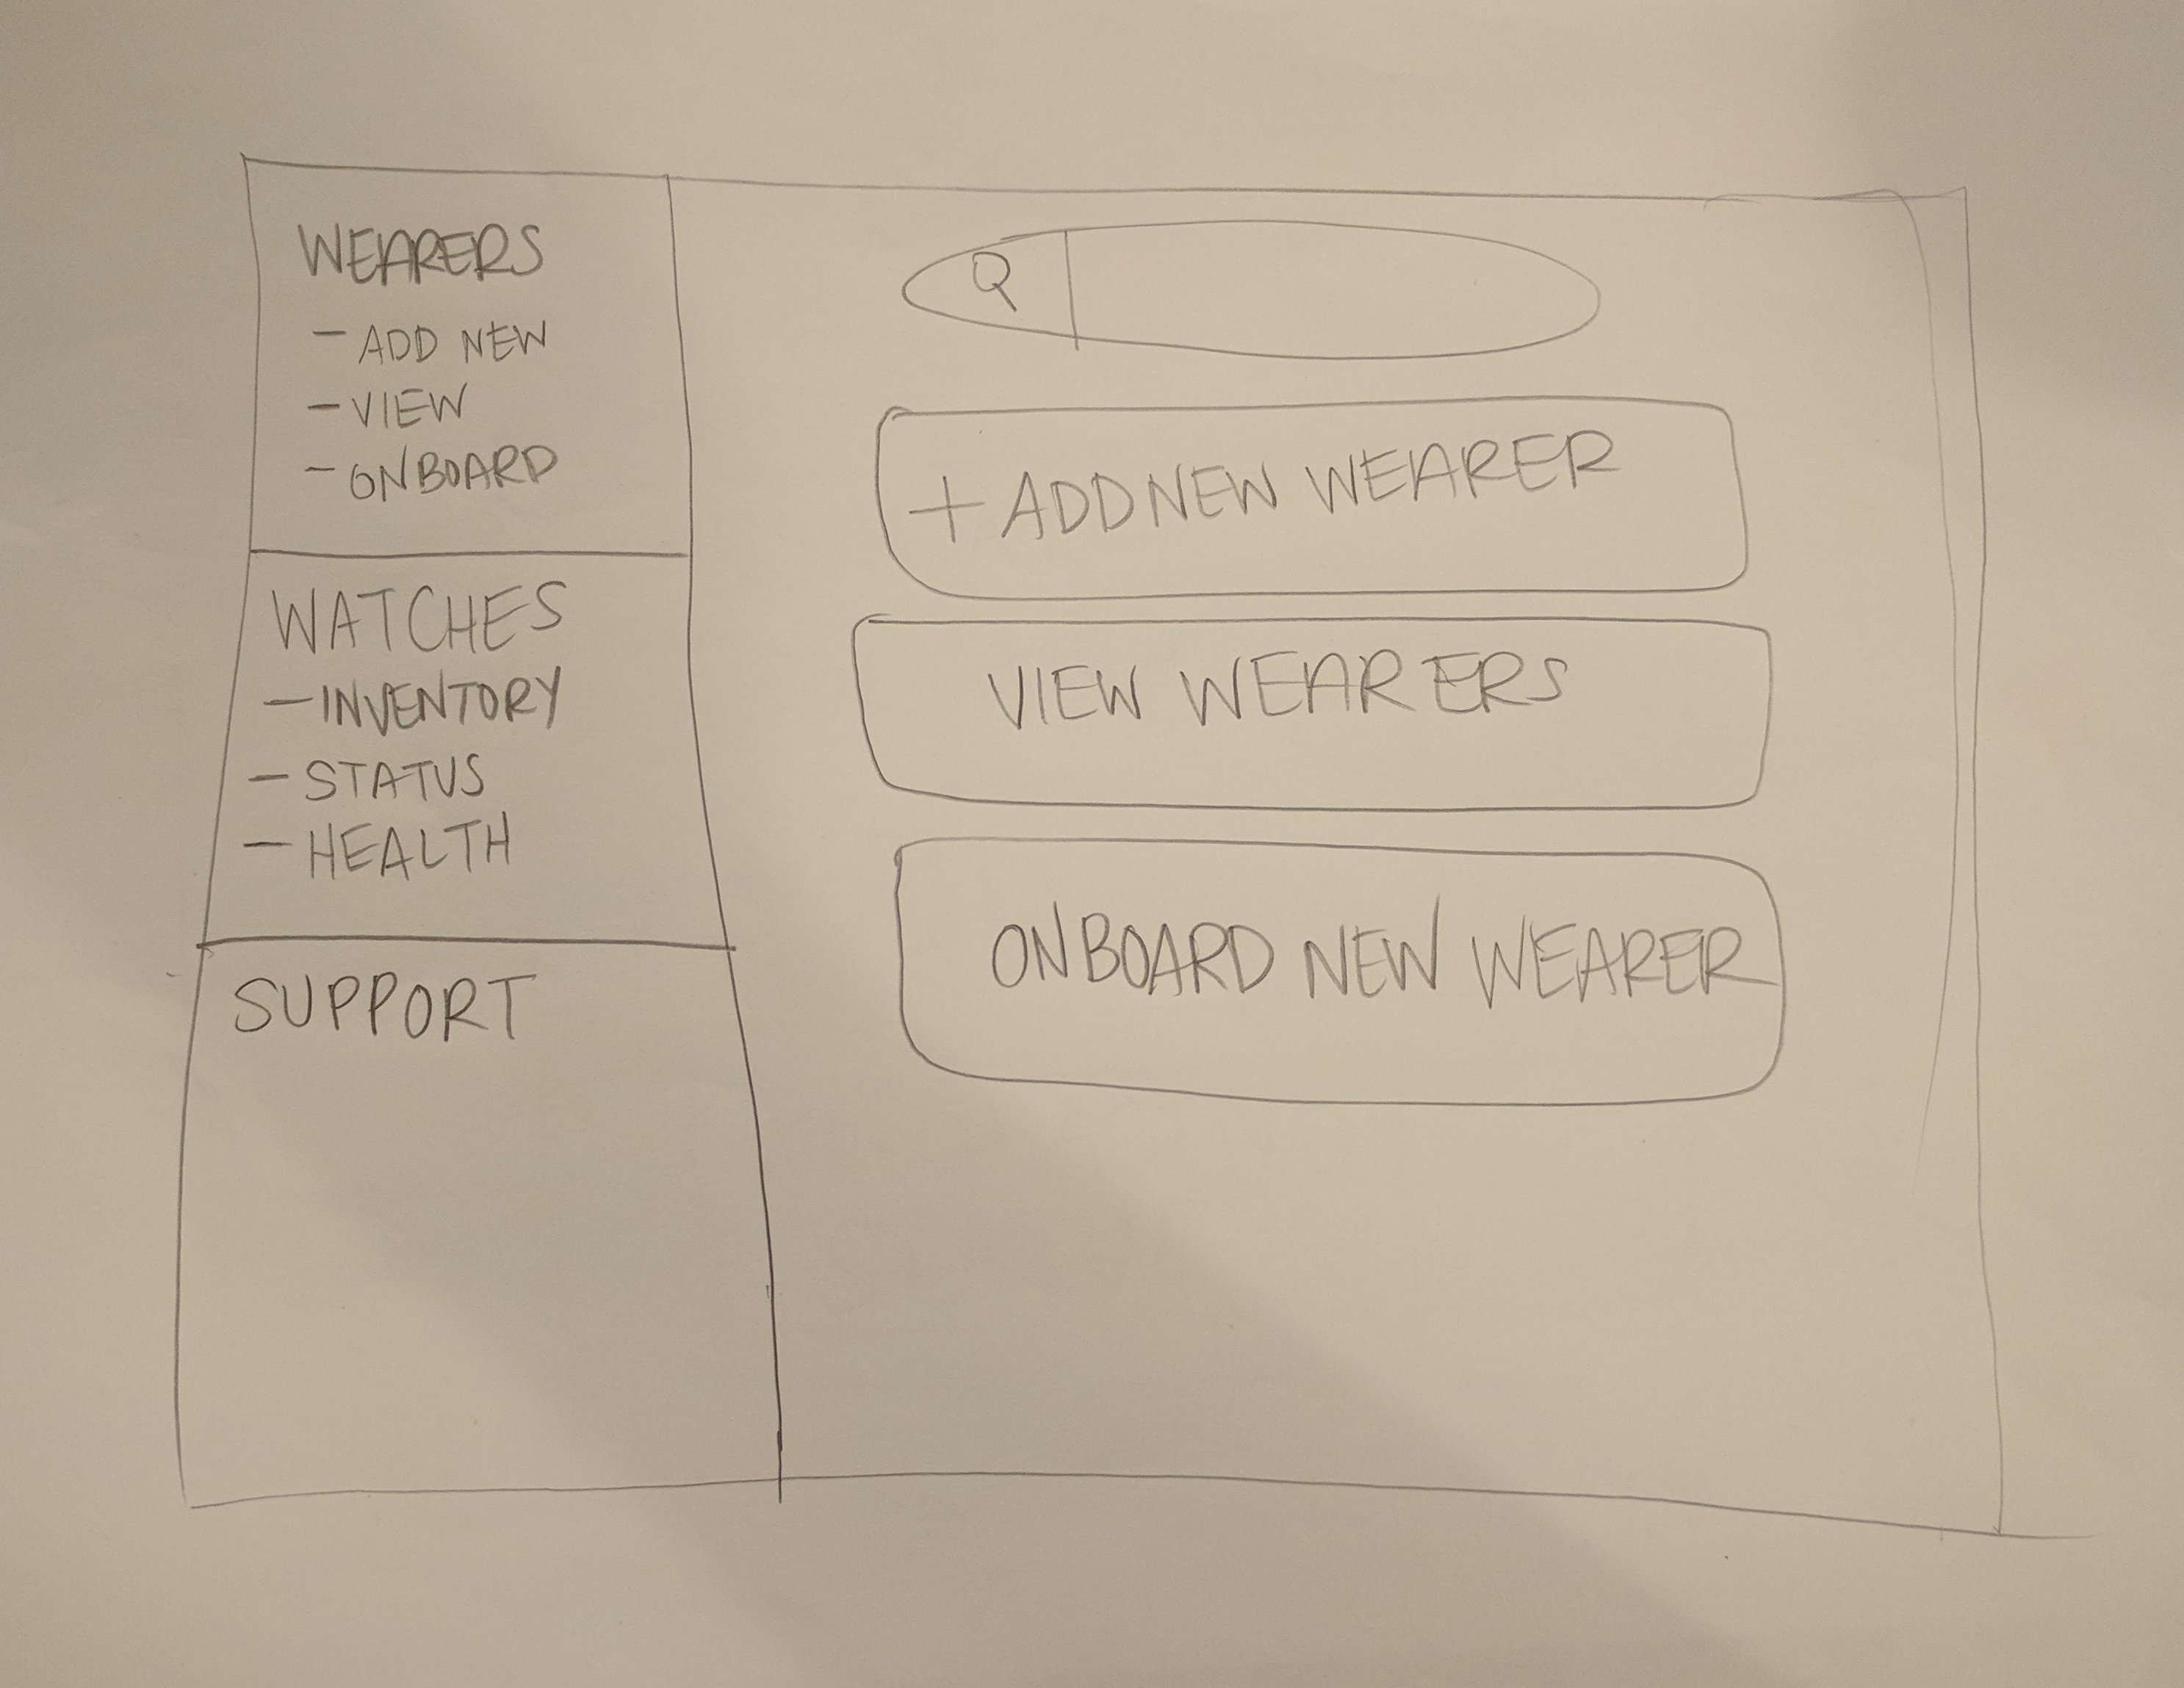 WEARERS
- ADD NEW
- VIEW
- ONBOARD
WATCHES
- INVENTORY
- STATUS
- HEALTH
SUPPORT
+ ADD NEW WEARER
VIEW WEARERS
ONBOARD NEW WEARER